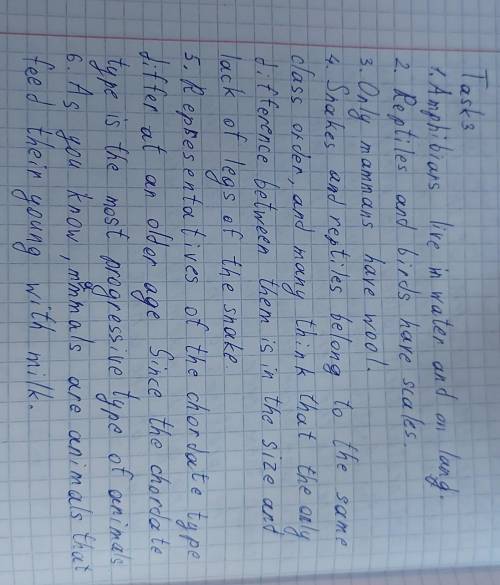 Task 3
1. Amphibians live in water and on lang.
2. Reptiles and birds have scales.
3. Only mammans have wool.
4. Snakes and reptiles belong to the same
class order, and many think that the only
difference between them is in the size and
lack of legs of the snake
5. Representatives of the chordate type
differ at an older age Since the chordate
type is the most progressive type of animals
6. As you know, mammals are animals that
feed their young with milk.